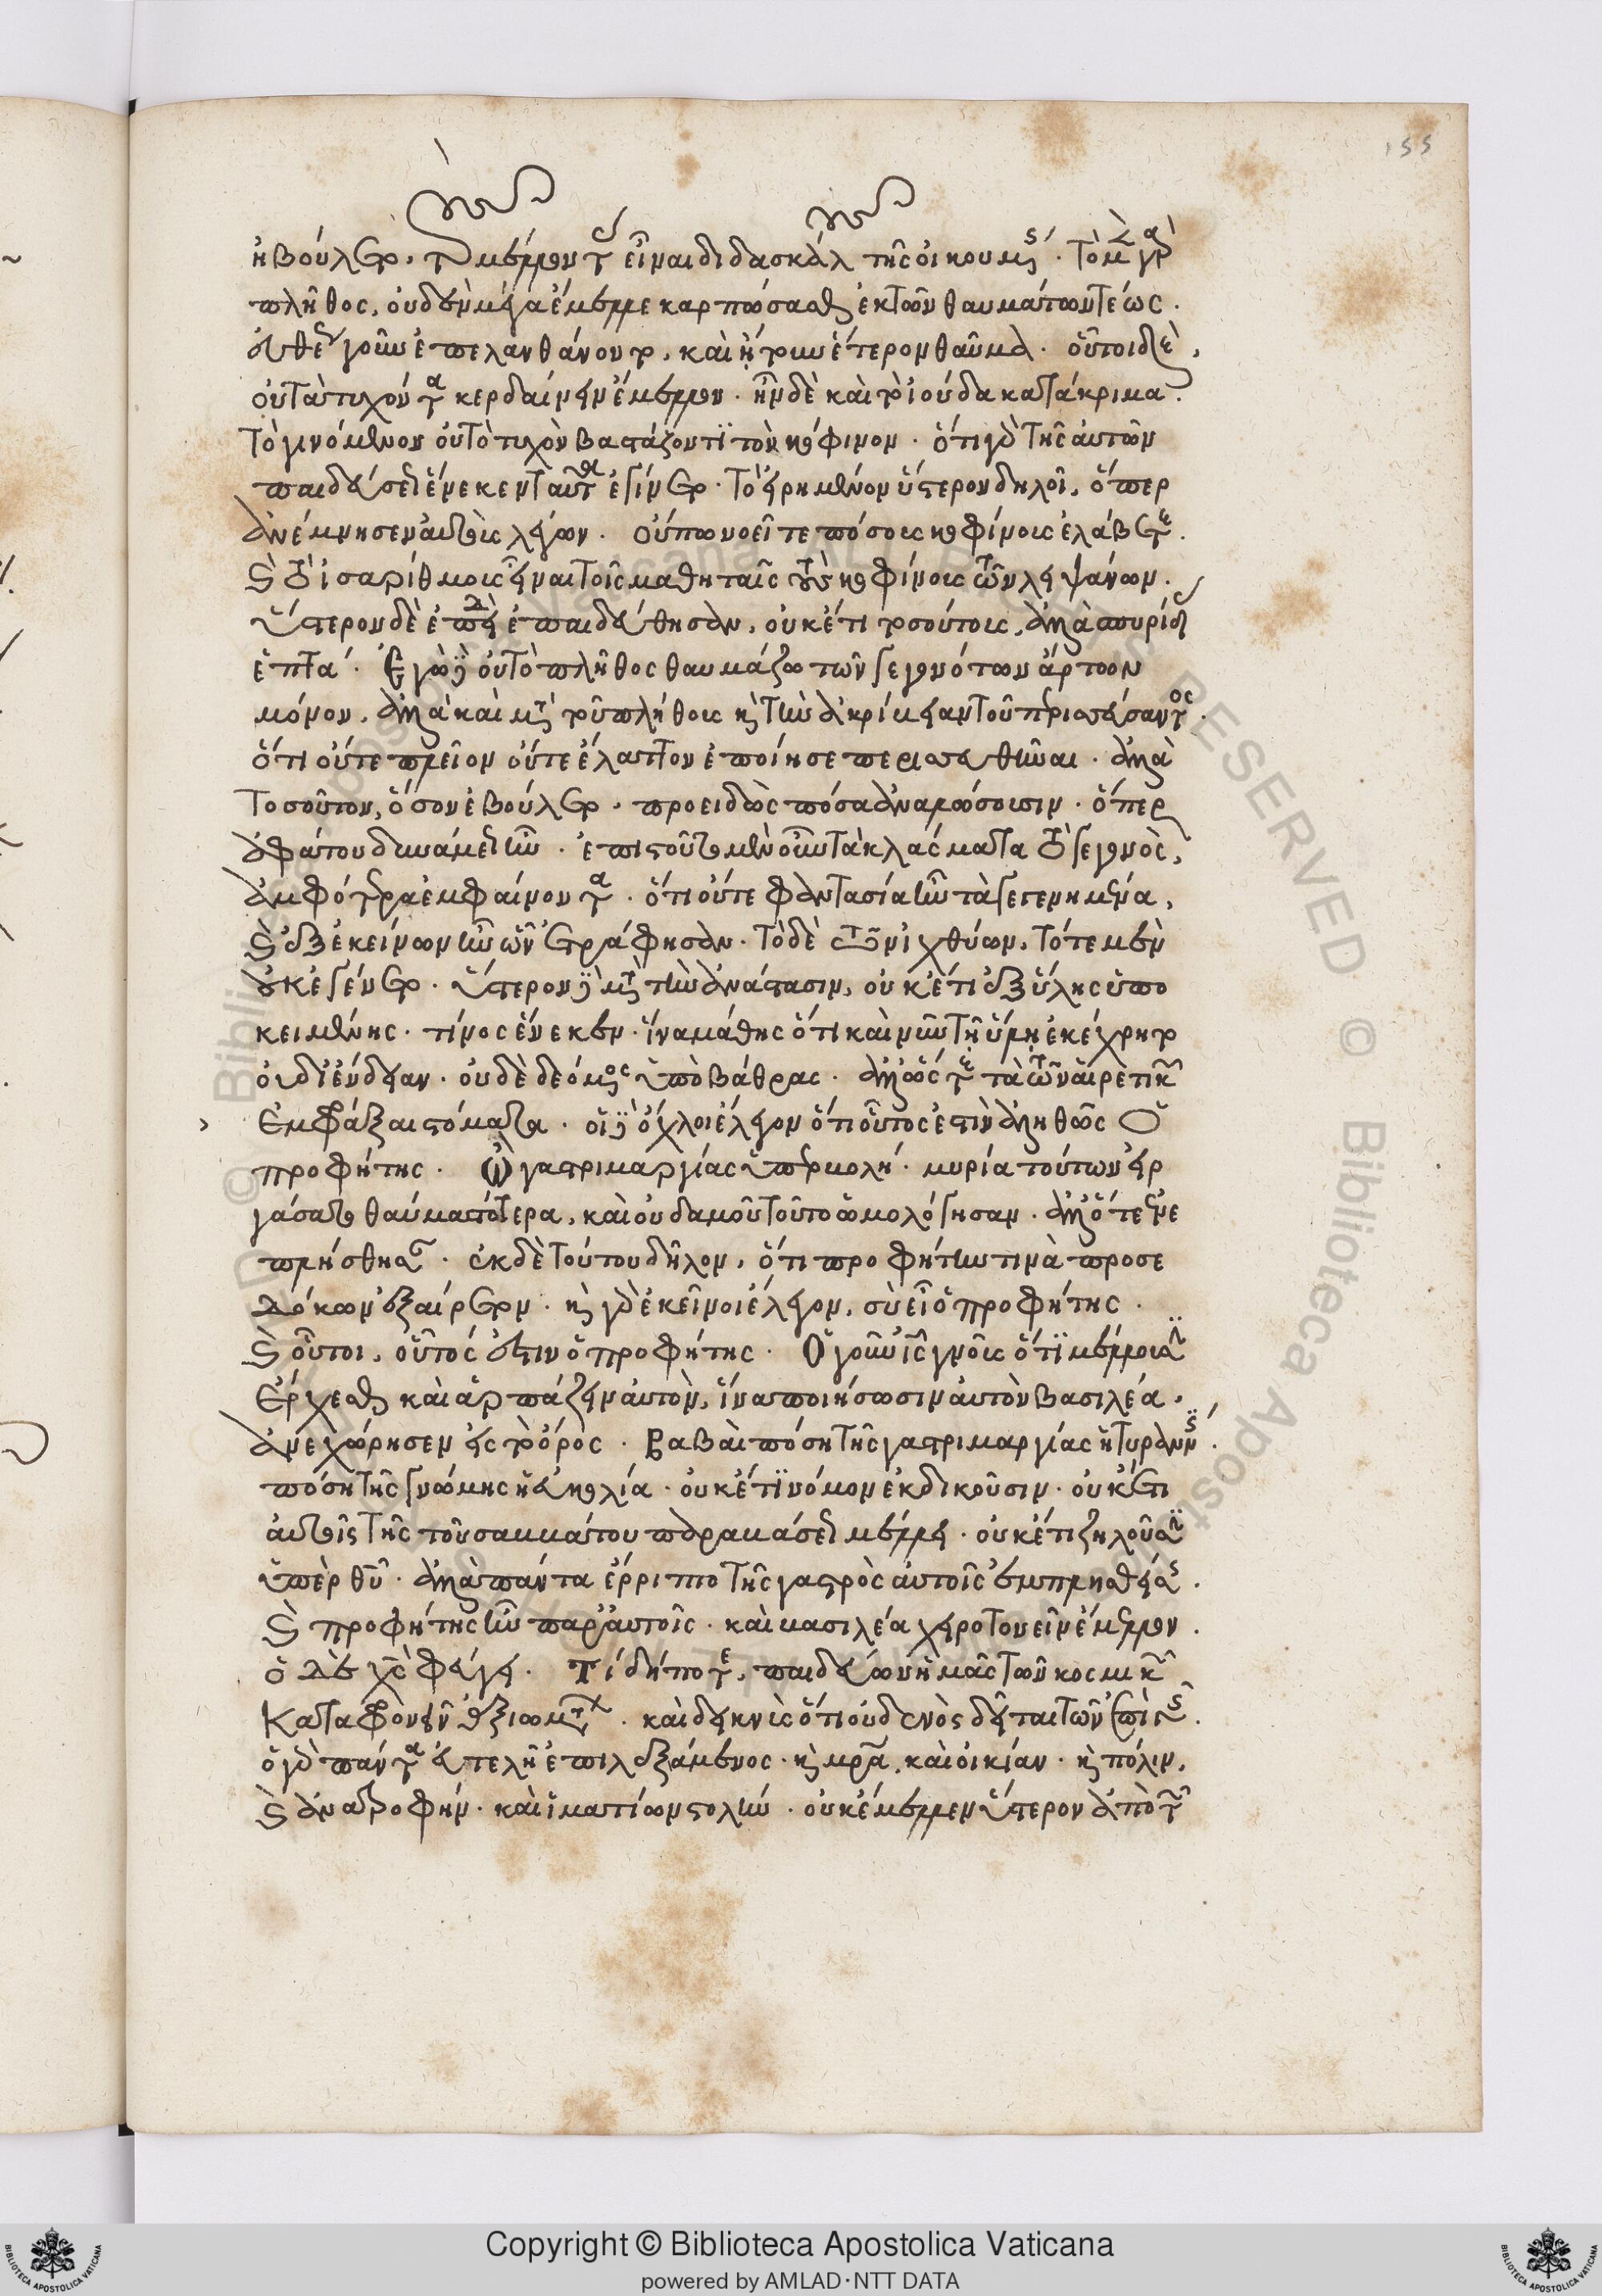 155
ἠβούλετο, τῶν μελλόντων εἶναι διδασκάλων τῆς οἰκουμένης. Τὸ μὲν γὰρ
πλῆθος, οὐδὲν μέγα ἔμελλε καρπώσασθαι ἐκ τῶν θαυμάτων τέως.
εὐθέως γοῦν ἐπελανθάνοντο, καὶ ᾔτουν ἕτερον θαῦμα. οὗτοι δὲ,
οὐ τὰ τυχόντα κερδαίνειν ἔμελλον. ἦν δὲ καὶ τῶ ἰούδα κατάκριμα
τὸ γινόμενον οὐ τὸ τυχὸν βαστάζοντι τὸν κόφινον. ὅτι γὰρ τῆς αὐτῶν
παιδεύσεως ἕνεκεν ταῦτα ἐγίνετο. τὸ εἰρημένον ὕστερον δηλοῖ, ὅπερ
ἀνέμνησεν αὐτοὺς λέγων. οὔπω νοεῖτε πόσους κοφίνους ἐλάβετε.
καὶ τὸ ἰσαρίθμους εἶναι τοῖς μαθηταῖς τοὺς κοφίνους τῶν λειψάνων.
ὕστερον δὲ ἐπειδὴ ἐπαιδεύθησαν, οὐκέτι τοσούτους, ἀλλὰ σπυρίδας
ἑπτά. Ἐγὼ δὲ οὐ τὸ πλῆθος θαυμάζω τῶν γεγονότων ἄρτων
μόνον, ἀλλὰ καὶ μετὰ τοῦ πλήθους καὶ τὴν ἀκρίβειαν τοῦ περισσεύσαντος.
ὅτι οὔτε πλεῖον οὔτε ἔλαττον ἐποίησε περισσευθῆναι. ἀλλὰ
τοσοῦτον, ὅσον ἐβούλετο. προειδὼς πόσα ἀναλώσουσιν. ὅπερ
ἀφάτου δυνάμεως ἦν. ἐπιστοῦτο μὲν οὖν τὰ κλάσματα τὸ γεγονὸς,
ἀμφότερα ἐμφαίνοντα. ὅτι οὔτε φαντασία ἦν τὰ γεγενημένα,
καὶ ἐξ ἐκείνων ἦν ὧν ἐτράφησαν. τὸ δὲ τῶν ἰχθύων, τότε μὲν
οὐκ ἐγένετο. ὕστερον δὲ μετὰ τὴν ἀνάστασιν, οὐκέτι ἐξ ὕλης ὑπο
κειμένης. τίνος ἕνεκεν. ἵνα μάθης ὅτι καὶ νῦν τῇ ὕλῃ ἐκέχρητο
οὐ δι' ἔνδειαν. οὐδὲ δεόμενος ὑποβάθρας. ἀλλ' ὥστε τὰ τῶν αἱρετικῶν
ἐμφράξαι στόματα. οἱ δὲ ὄχλοι ἔλεγον ὅτι οὗτος ἐστὶν ἀληθῶς ὁ
προφήτης. Ὢ γαστριμαργίας ὑπερβολή. μυρία τούτων εἰρ
γάσατο θαυμαστότερα, καὶ οὐδαμοῦ τοῦτο ὡμολόγησαν. ἀλλ' ὅτε ἐνε
πλήσθησαν. ἐκ δὲ τούτου δῆλον, ὅτι προφήτην τινὰ προσε
δόκων ἐξαίρετον. καὶ γὰρ ἐκεῖνοι ἔλεγον, σὺ εἶ ὁ προφήτης.
καὶ οὗτοι, οὗτός ἐστιν ὁ προφήτης. Ὁ γοῦν ἰς γνοῦς ὅτι μέλλουσιν
ἔρχεσθαι καὶ ἁρπάζειν αὐτὸν, ἵνα ποιήσωσιν αὐτὸν βασιλέα,
ἀνεχώρησεν εἰς τὸ ὄρος. Βαβαὶ πόση τῆς γαστριμαργίας ἡ τυραννίς.
πόση τῆς γνώμης ἡ εὐκολία. οὐκέτι νόμον ἐκδικοῦσιν. οὐκέτι
αὐτοῖς τῆς τοῦ σαββάτου παραβάσεως μέλλει. οὐκέτι ζηλοῦσιν
ὑπὲρ θῦ. ἀλλὰ πάντα ἔρριπτο τῆς γαστρὸς αὐτοῖς ἐμπλησθείσης.
καὶ προφήτης ἦν παρ' αὐτοῖς. καὶ βασιλέα χειροτονεῖν ἔμελλον.
ὁ δὲ χς φεύγει. Τί δήποτε, παιδεύων ἡμᾶς τῶν κοσμικῶν
καταφρονεῖν ἀξιωμάτων. καὶ δεικνὺς ὅτι οὐδενὸς δεῖται τῶν ἐπὶ γῆς.
ὁ γὰρ πάντα εὐτελῆ ἐπιλεξάμενος. καὶ μρα, καὶ οἰκίαν. καὶ πόλιν,
καὶ ἀναστροφήν. καὶ ἱματίων στολήν. οὐκ ἔμελλεν ὕστερον ἀπὸ τῶν
Copyright © Biblioteca Apostolica Vaticana
powered by AMLAD·NTT DATA